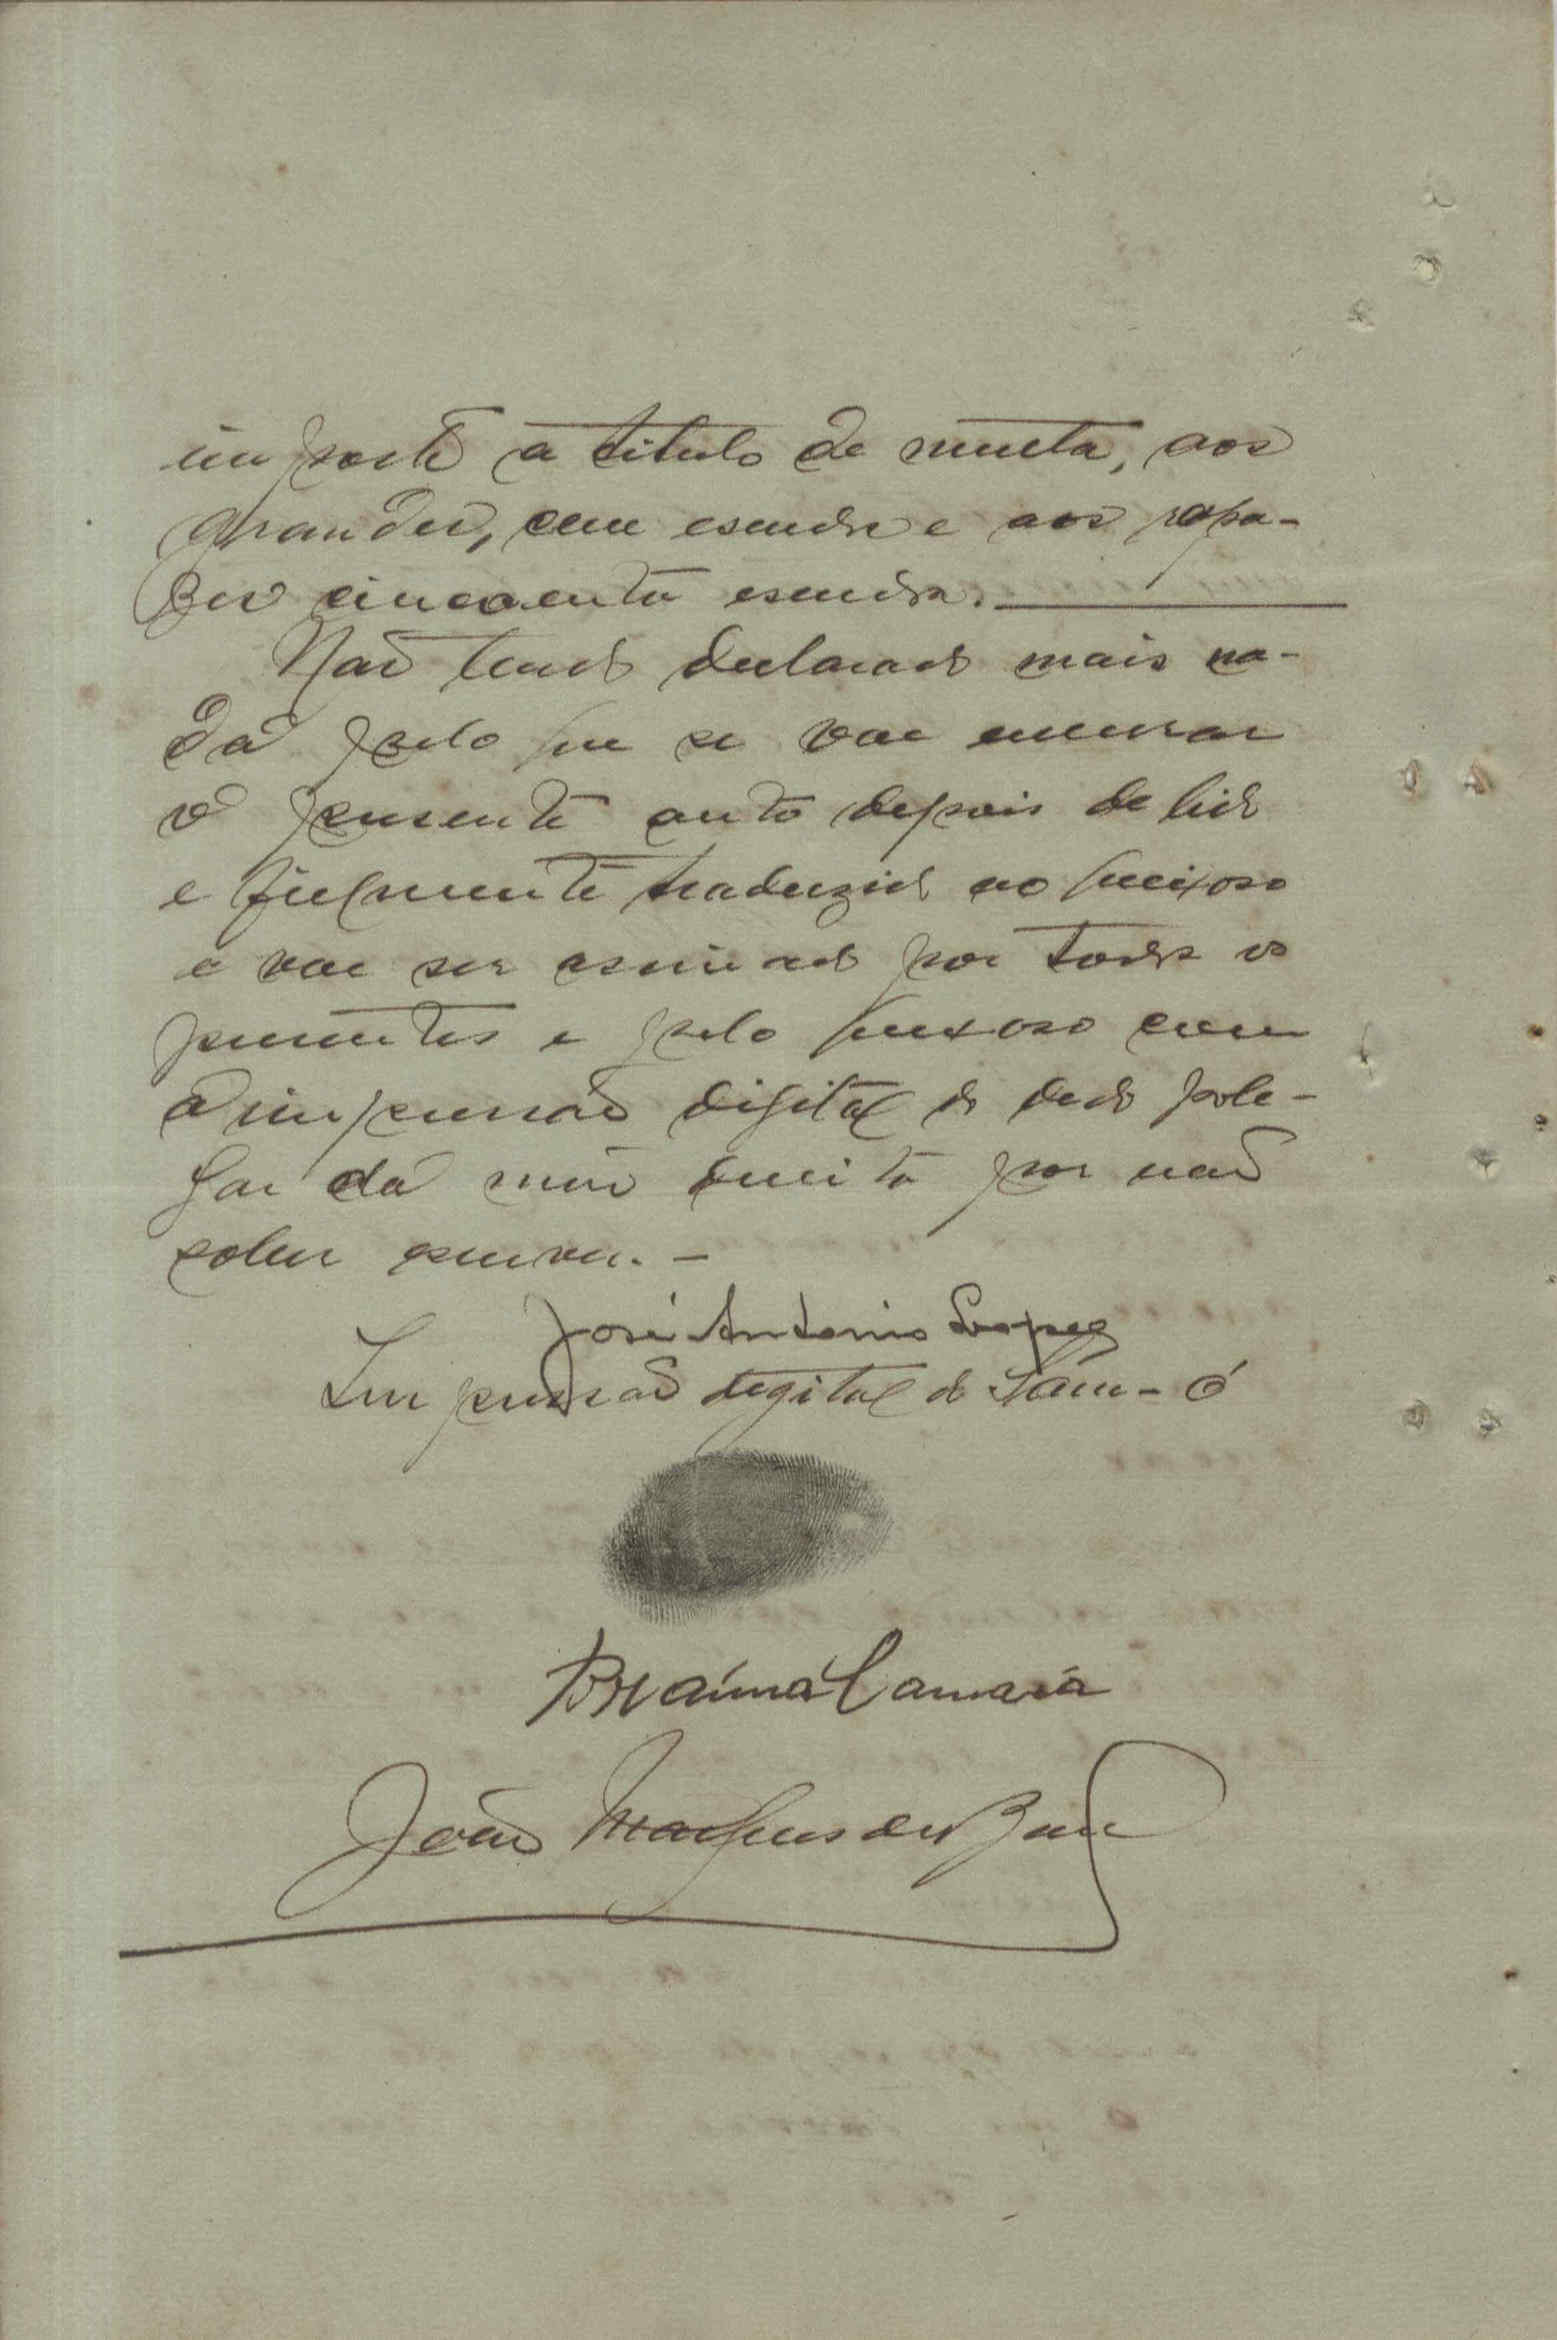 imposto a titulo de multa, aos
grandes, cem escudos e aos rapa-
zes cincoenta escudos.
Não tendo declarado mais na-
da pelo que se vae encerrar
o presente auto depois de lido
e fielmente traduzido ao queixoso
e vae ser assinado por todos os
presentes e pelo queixoso com
a impressão digital do dedo pole-
gar da mão direita por não
saber escrever. -
José Antonio Lopes
Impressão degital de Sam-ó
Braima Camará
João